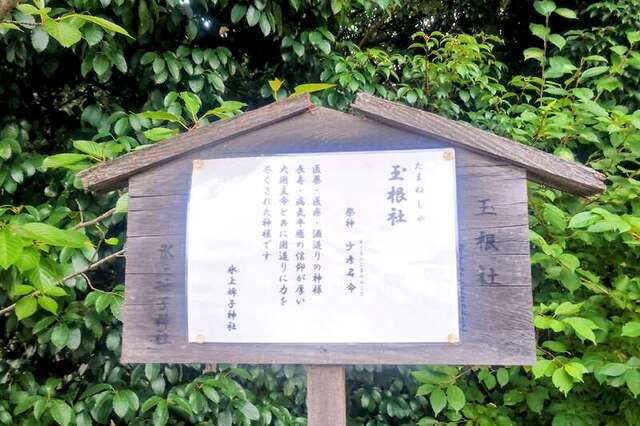 玉根社
たまねしゃ
玉根社
祭神　少彦名命
すくなひこなのみこと
医薬・医療・酒造りの神様
長寿・病気平癒の信仰が厚い
大国主命と共に国造りに力を
尽くされた神様です
氷上姉子神社
氷上姉子神社